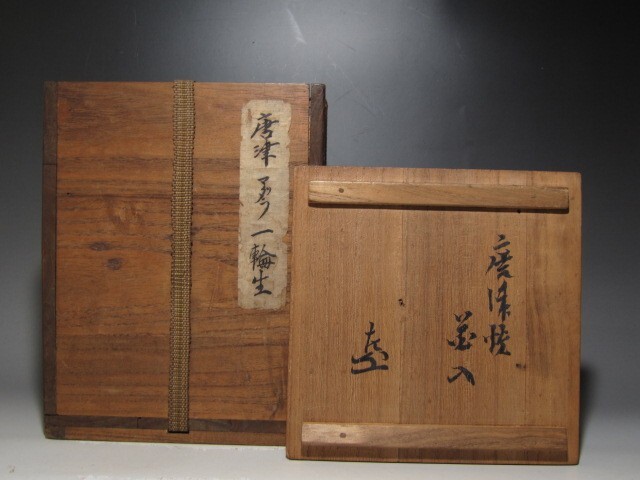 唐津
一輪生
唐津焼
花入